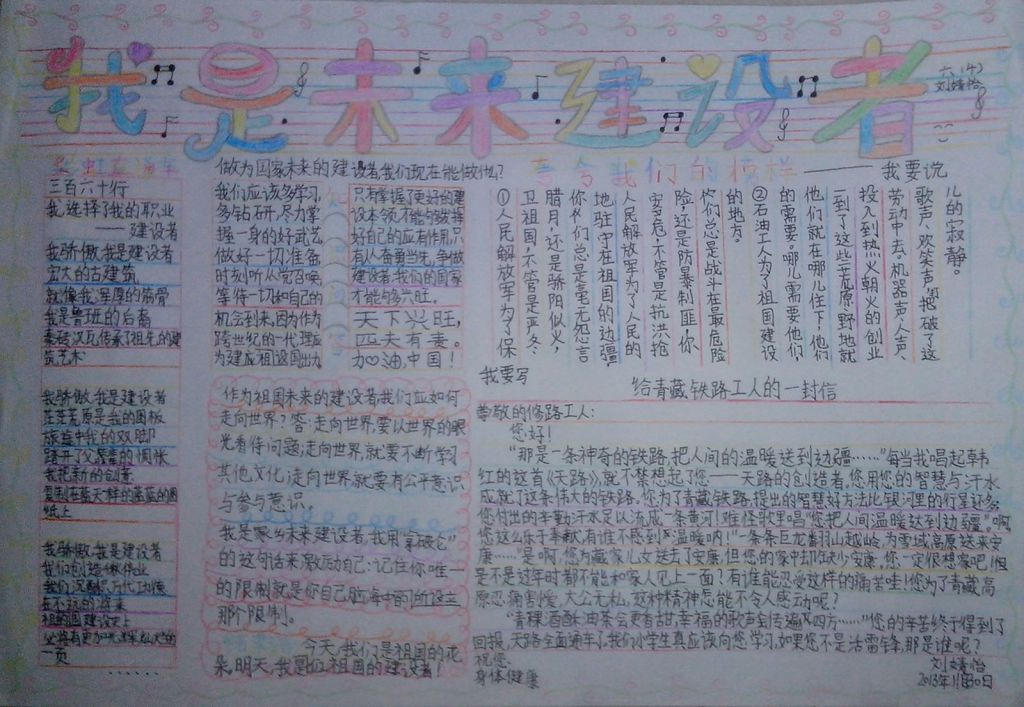 我是未来建设者
六(4)
刘婧怡
三百六十行
我选择了我的职业
——建设者
我骄傲,我是建设者
宏大的古建筑
就像我浑厚的筋骨
我是鲁班的后裔
秦砖汉瓦传承了祖先的建
筑艺术
我骄傲,我是建设者
茫茫荒原是我的图板
旅途中我的双脚
我把新的创意
复制在蓝天样的蓝蓝的图
纸上
我骄傲,我是建设者
我们创造伟业
祖国建设史上
一页
······
做为国家未来的建设者我们现在能做什么?
我们应该多学习,
多钻研,尽力掌
握一身的好武艺
做好一切准备
时刻听从党召唤,
等待一切和自己的
机会到来,因为作为
跨世纪的一代理应
为建应祖设国出力
只有掌握了更好的建
设本领,才能够发挥
好自己的应有作用,只
有人人奋勇当先,争做
建设者,我们的国家
才能够兴旺。
天下兴旺,
匹夫有责。
加油,中国!
作为祖国未来的建设者我们应如何
走向世界?答:走向世界,要以世界的眼
光看待问题,走向世界,就要不断学习
其他文化,走向世界就要有公平意识
与参与意识。
我是家乡未来建设者,我用"拿破仑"
的这句话来激励自己:记住你唯一
的限制就是你自己脑海中的所设立
那个限制。
今天,我们是祖国的花
朵,明天,我是们祖国的建设者!
夸夸我们的榜样——我要说
①人民解放军为了保
卫祖国,不管是严冬、
腊月,还是骄阳似火,
你们总是毫无怨言
地驻守在祖国的边疆,
人民解放军为了人民的
安危,不管是抗洪抢
险还是防暴制匪你
们总是战斗在最危险
的地方。
②石油工人为了祖国建设
的需要。哪儿需要他们
他们就在哪儿住下!他们
一到了这些荒原野地就
投入到热火朝火的创业
劳动中去,机器声、人声、
歌声、欢笑声,都把破了这
儿的寂静。
我要写
给青藏铁路工人的一封信
尊敬的修路工人:
您好!
"那是一条神奇的铁路,把人间的温暖送到边疆……"每当我唱起韩
红的这首《天路》,就不禁想起了您——天路的创造者,您用您的智慧与汗水
成就了这条伟大的铁路。您为了青藏铁路,提出的智慧好方法比银河里的行星还多,
您付出的辛勤汗水足以流成一条黄河!难怪歌里唱"您把人间温暖达到边疆"。啊,
您这么乐于奉献,有谁不感到"温暖"呐!"一条条巨龙翻山越岭,为雪域高原送来安
康……"是啊,您为藏家儿女送去了安康,但您的家中却缺少安康,您一定很想家吧!但
是不是过年时都不能和家人见上一面?有谁能忍受这样的痛苦哇!您为了青藏高
原忍痛割爱,大公无私,这种精神怎能不令人感动呢?
"青稞酒酥油茶会更香甜,幸福的歌声会传遍四方……"您的辛苦终于得到了
回报,天路全面通车了,我们小学生真应该向您学习,如果您不是活雷锋,那是谁呢?
祝您
身体健康
刘婧怡
2013年11月30日